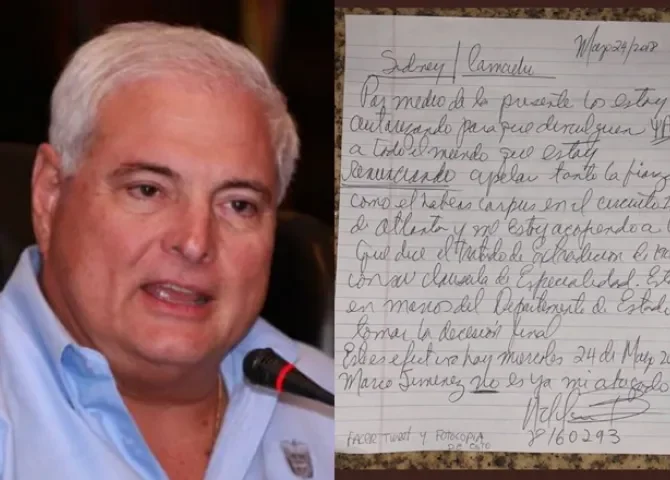 Mayo 24/2018
Sidney / Camacho
Por medio de la presente los estoy
autorizando para que divulguen YA
a todo el mundo que estoy
renunciando apelar tanto la fianza
como el habeas corpus en el circuito
de atlanta y me estoy acogiendo a
que dice el tratado de extradicion
con su clausula de Especialidad. Est
en manos del Departamento de Estado
tomar la decision final
Esto es efectivo hoy miercoles 24 de Mayo 20
Mario Jimenez no es ya mi abogado
8160293
HACER Tweet y Fotocopia
de esto